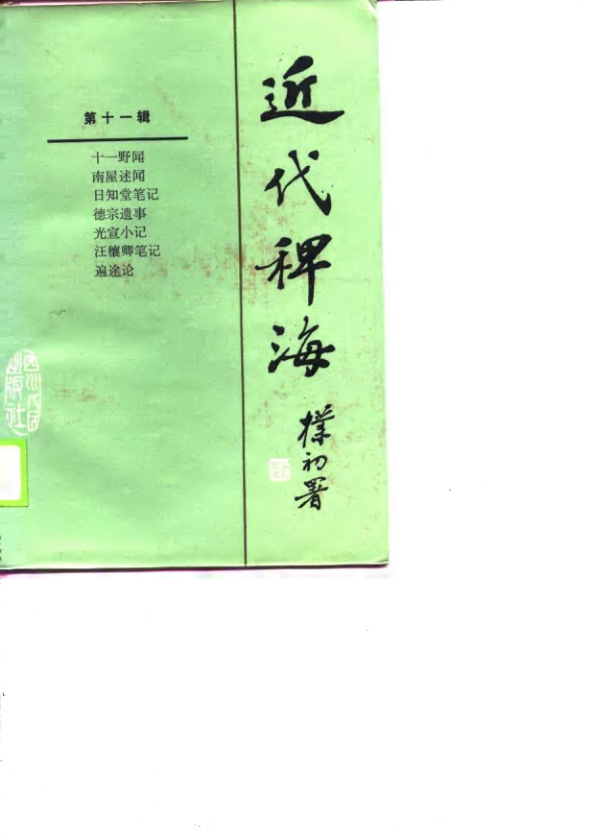 近代稗海
樸初署
第十一辑
十一野闻
南屋述闻
日知堂笔记
德宗遗事
光宣小记
汪穰卿笔记
遍途论
四川人民
出版社